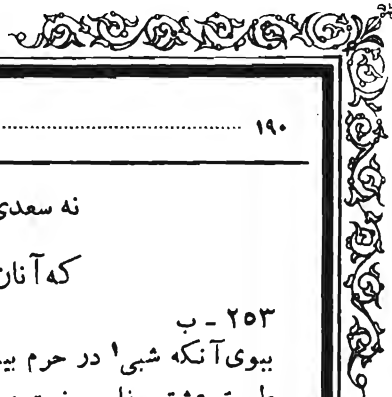 ۱۹۰ ........................................
نه سعدی
که آنان
۲۵۳ - ب
ببوی آنکه شبی۱ در حرم